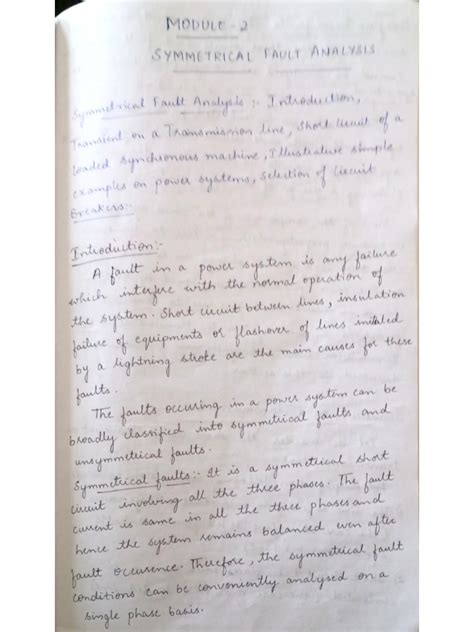 MODULE - 2
SYMMETRICAL FAULT ANALYSIS
Symmetrical Fault Analysis :- Introduction,
Transient on a Transmission line, Short Circuit of a
loaded synchronous machine, Illustrative simple
examples on power systems, Selection of Circuit
Breakers:-
Introduction:-
A fault in a power system is any failure
which interfere with the normal operation of
the system. Short circuit between lines, insulation
failure of equipments or flashover of lines initiated
by a lightning stroke are the main causes for these
faults.
The faults occuring in a power system can be
broadly classified into symmetrical faults and
unsymmetrical faults.
Symmetrical faults:- It is a symmetrical short
circuit involving all the three phases. The fault
current is same in all the three phases and
hence the system remains balanced even after
fault occurence. Therefore, the symmetrical fault
conditions can be conveniently analysed on a
single phase basis.